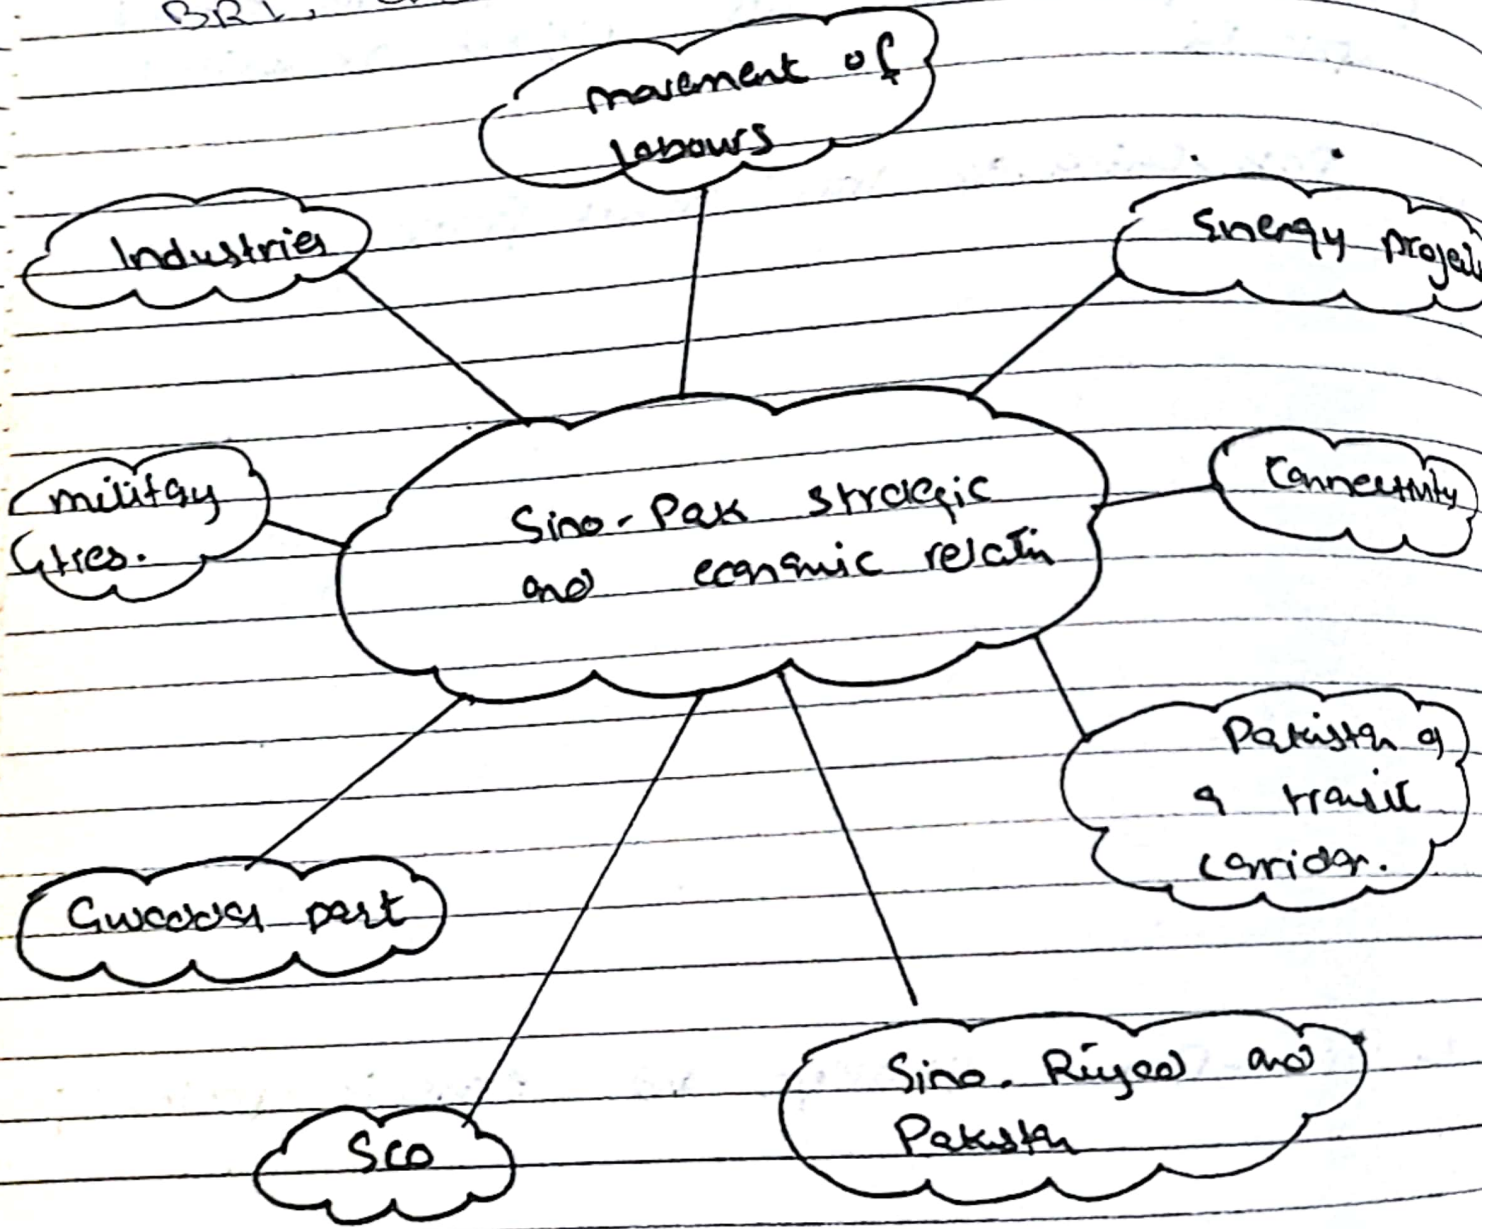 BRI,
movement of
labours
Industries
Energy
Connectivity
military
ties.
Sino-Pak strategic
and economic relatin
Pakistan as
a transit
corridor.
Gwadar port
Sino. Riyad and
Pakistan
SCO